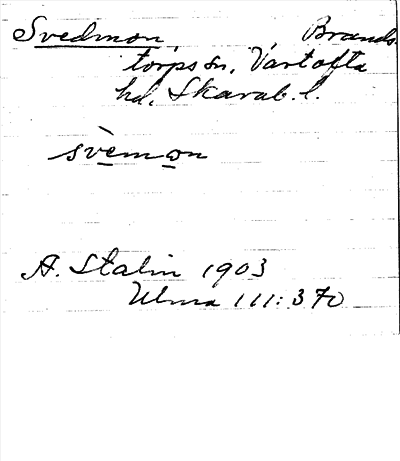 Svedmon Brands-
torps sn, Vartofta
hd. Skarab. l.
svèmon
A. Stalin 1903
Ulma 111: 370